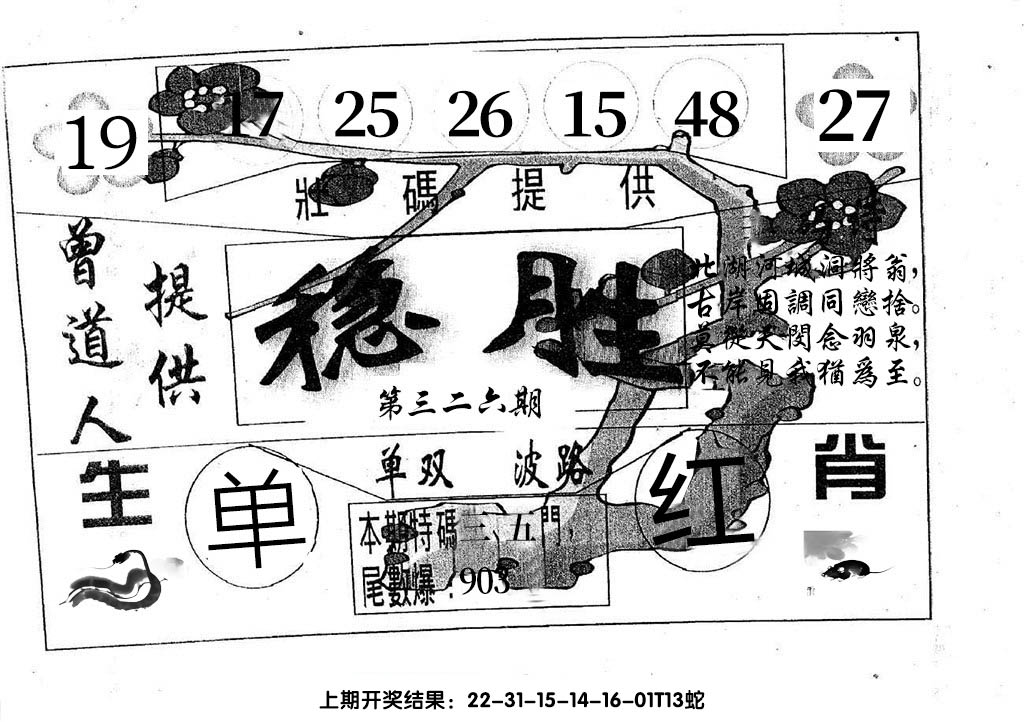 19 17 25 26 15 48 27
壯碼提供
曾道人
提供
稳胜
第三二六期
北湖河城洄將翁，
古岸固調同戀捨。
莫從关閔念羽泉，
不能見我猶爲至。
单双 波路
生 单 红 肖
本期特碼三、五門，
尾數爆：903
上期开奖结果：22-31-15-14-16-01T13蛇